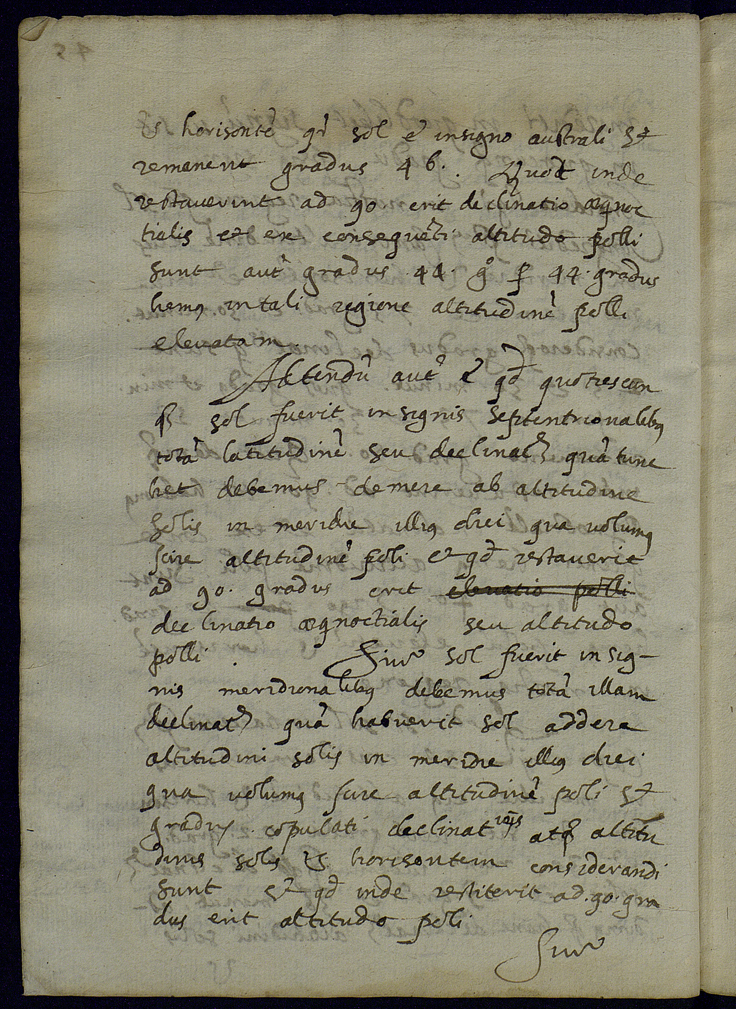 horisontē qn̄ sol ē in signo australi et
remanent gradus 46. Quod inde
restaverint ad 90 erit declinatio æqnoc
tialis et ex consequēti altitudo polli
sunt autē gradus 44. gͦ p 44 gradus
hemꝰ in tali regione altitudinē polli
elevatam
Attendū autē ē qd̄ quotiescun
qꝫ sol fuerit in signis septentrionalibꝰ
totā latitudinē seu declinat quā tunc
het debemus demere ab altitudine
solis in meridie illiꝰ diei qua volumꝰ
scire altitudinē poli et qd̄ restaverit
ad 90. gradus erit elevatio polli
declinatio æqnoctialis seu altitudo
polli. Sive sol fuerit in sig-
nis meridionalibꝰ debemus totā illam
declinat quā habuerit sol addere
altitudini solis in meridie illiꝰ diei
qua volumꝰ scire altitudinē poli et
gradus copulati declinationis atqꝫ altitu
dinis solis horisontem considerandi
sunt et qd̄ inde restiterit ad 90. gra
dus erit altitudo poli
Sive